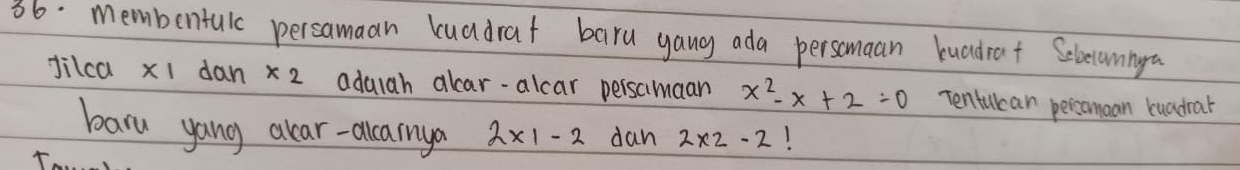 36. Membentuk persamaan kuadrat baru yang ada persamaan kuadrat Sebelumnya
Jika x1 dan x2 adalah akar-akar persamaan x²-x+2=0 Tentukan persamaan kuadrat
baru yang akar-akarnya 2x1-2 dan 2x2-2!